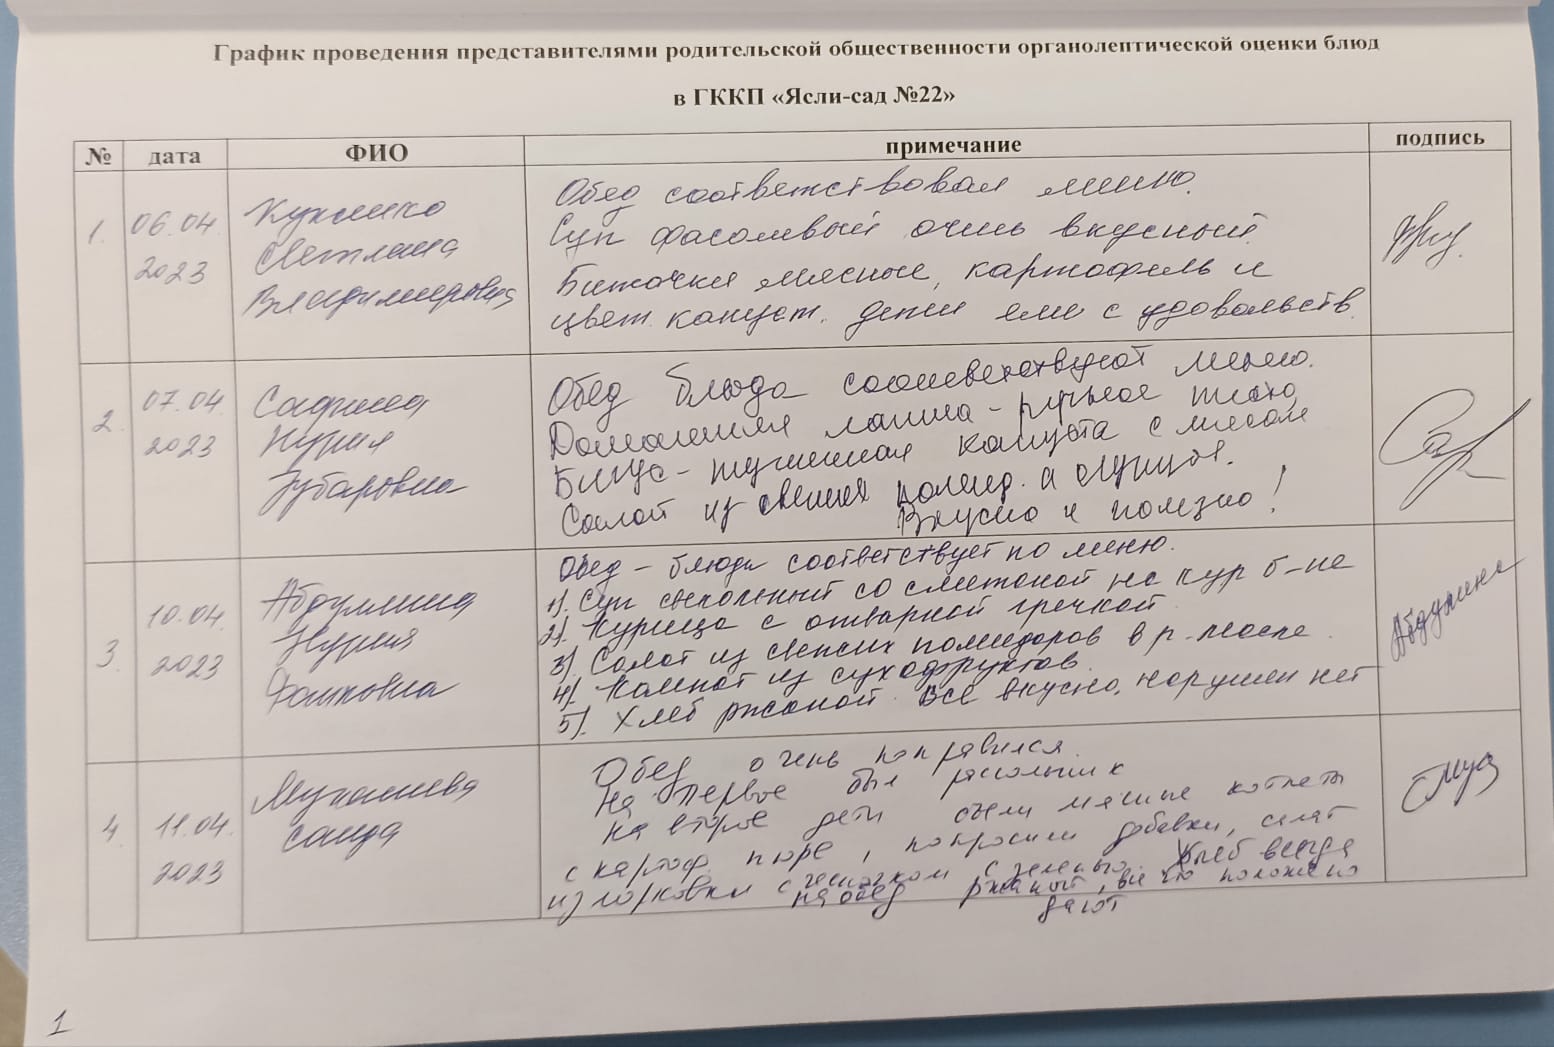 График проведения представителями родительской общественности органолептической оценки блюд
в ГККП «Ясли-сад №22»
№ дата ФИО примечание подпись
1. 06.04. 2023
Светлана
Владимировна
Обед соответствовал меню.
Суп фасолевый очень вкусный.
Биточки мясные, картофель и
цвет. капуст. дети ели с удовольств.
2. 07.04. 2023
Нурия
Зубаровна
Обед блюда соответствуют меню.
Домашняя лапша - первое
Бигус - тушенная капуста с мясом
Салат из свежих помид. и огурцов.
Вкусно и полезно!
3. 10.04. 2023
Абдуллина
Нурия
Обед - блюды соответствует по меню.
1). Суп свекольный со сметаной на кур б-не
2). Курица с отварной гречкой
3). Салат из свежих помидоров в р. масле.
4). Компот из сухофруктов.
5). Хлеб ржаной. Все вкусно, нарушен нет
Абдуллина
4. 11.04. 2023
Мукашева
Саида
Обед очень понравился.
На первое был рассольник
на второе дети съели мясные котлеты
с картоф. пюре, попросили добавки, салат
из морковки с чесночком с зеленью. Хлеб всегда
на обед ржаной, все что положено
дают
1